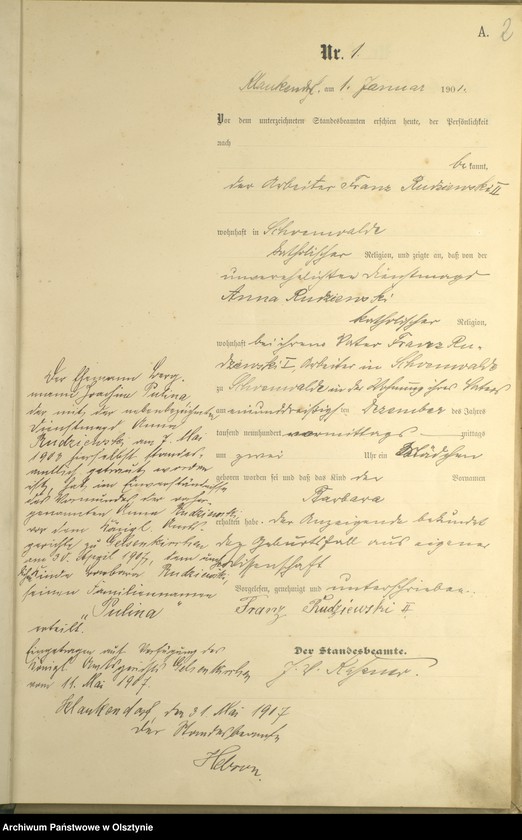 A. 2
Nr. 1.
Klaukendorf, am 1. Januar 1901.
Vor dem unterzeichneten Standesbeamten erschien heute, der Persönlichkeit
nach
be kannt,
der Arbeiter Franz Rudziewski II
wohnhaft in Schoenwalde
katholischer Religion, und zeigte an, daß von der
unverehelichten Dienstmagd
Anna Rudziewski
katholischer Religion,
wohnhaft bei ihrem Vater Franz Ru-
dziewski I, Arbeiter in Schoenwalde
zu Schoenwalde in der Wohnung ihres Vaters
am einunddreißig ten Dezember des Jahres
tausend neunhundert vormittags mittags
um zwei Uhr ein Mädchen
geboren worden sei und daß das Kind den Vornamen
Barbara
erhalten habe. Der Anzeigende bekundet
den Geburtsfall aus eigener
Wissenschaft
Vorgelesen, genehmigt und unterschrieben.
Franz Rudziewski II
Der Standesbeamte.
J. V.
Der Ehemann Berg-
mann Joachim Pulina
der mit der nebenbezeichneten
Dienstmagd Anna
Rudziewski am 7. Mai
standes-
amtlich getraut worden
ist, hat im Einverständnisse
des Vormundes der vor-
genannten Anna Rudziewski
vor dem Königl. Amts-
gerichte zu Gelsenkirchen
am 30. April 1917, dem
Kinde Barbara Rudziewski
seinen Familiennamen
"Pulina"
erteilt.
Eingetragen mit Verfügung des
Königl. Amtsgerichts Gelsenkirchen
vom 11. Mai 1917.
Klaukendorf, den 31. Mai 1917
Der Standesbeamte
Archiwum Państwowe w Olsztynie